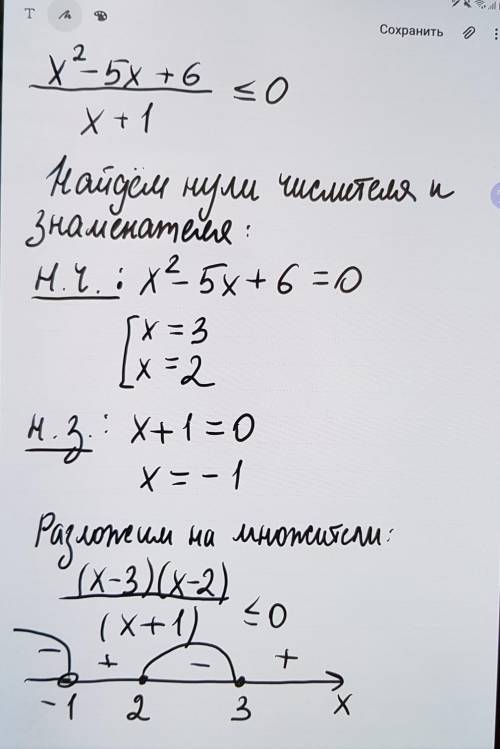 T
Сохранить
x² - 5x + 6 / x + 1 ≤ 0
Найдём нули числителя и
знаменателя:
Н.Ч.: x² - 5x + 6 = 0
[x = 3
x = 2
Н.З.: x + 1 = 0
x = -1
Разложим на множители:
(x-3)(x-2) / (x+1) ≤ 0
- + - +
-1 2 3 x